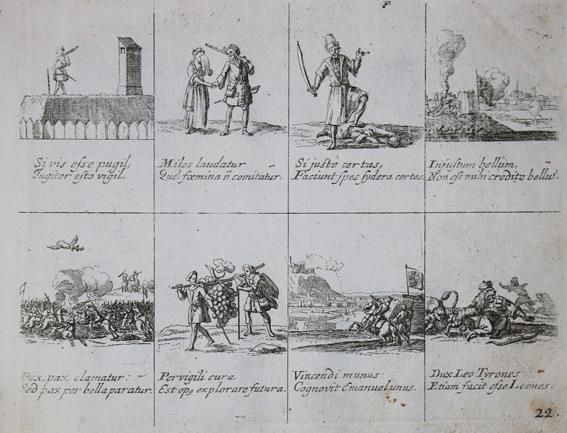 Si vis eſse pugil,
Jugiter eſto vigil.
Miles laudatur
Quē fœmina n̄ comitatur.
Si juſtè certas,
Faciunt ſpes ſydera certas.
Injuſtum bellum,
Non eſt mihi credito bellū.
Pax, pax clamatur
Sed pax per bella paratur.
Pervigili cura
Est opꝰ explorare futura.
Vincendi munus
Cognovit Emanuel unus.
Dux Leo Tyrones
Etiam facit eſse Leones.
22.